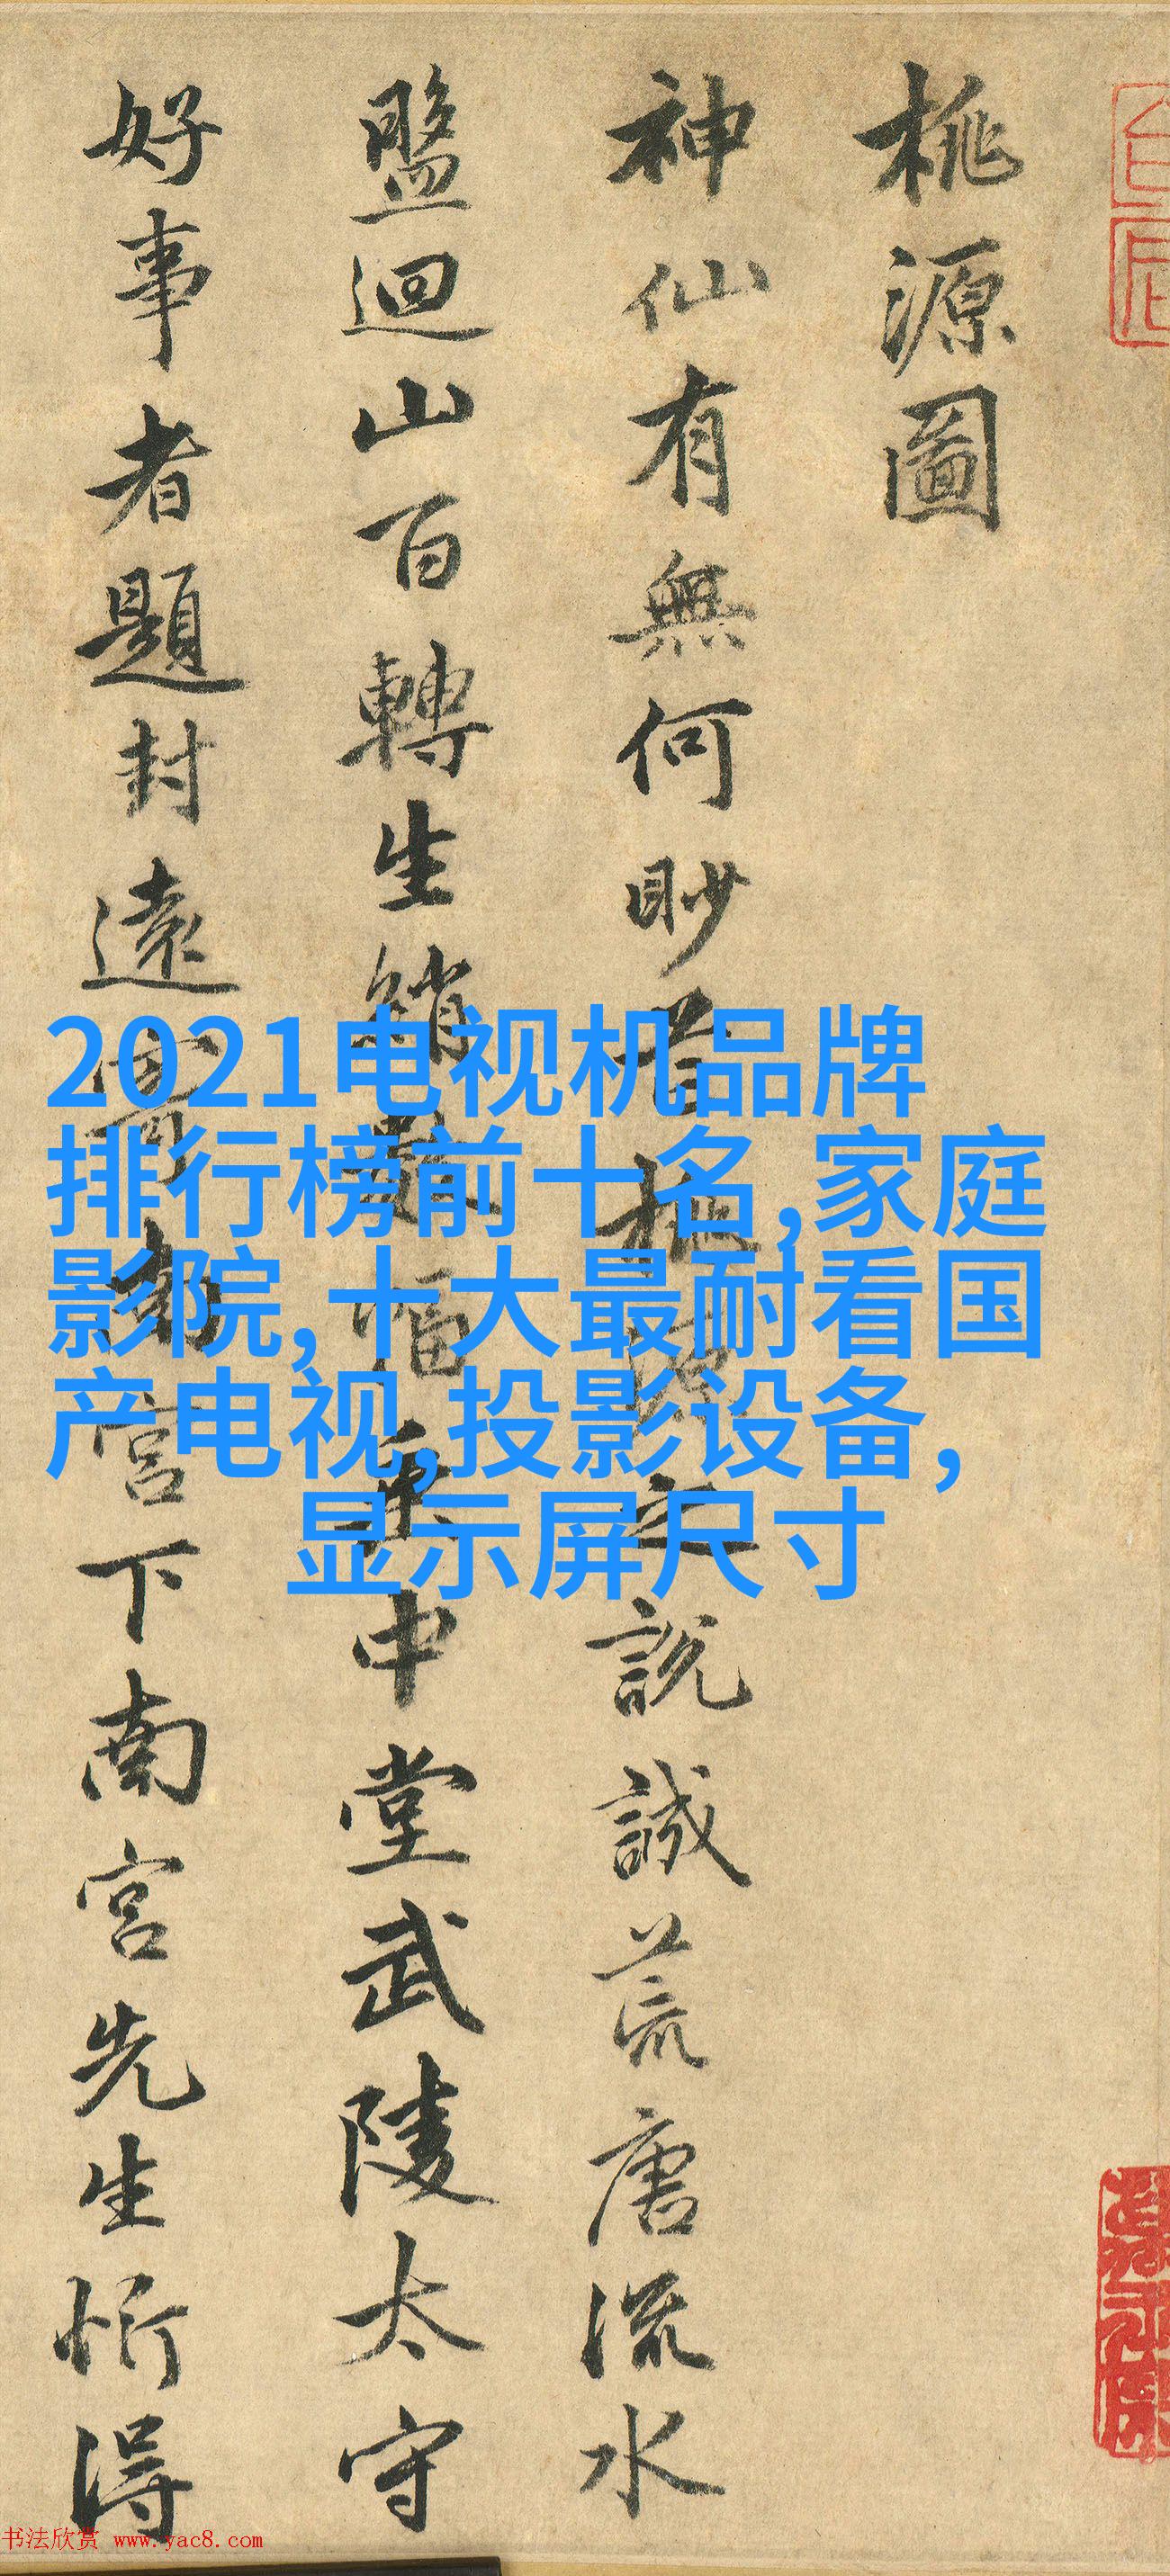 桃源圖
神仙有無何眇芒桃源之說誠荒唐流水
盤迴山百轉生綃數幅垂中堂武陵太守
好事者題封遠寄南宮下南宮先生忻得
2021电视机品牌
排行榜前十名,家庭
影院,十大最耐看国
产电视,投影设备,
显示屏尺寸
书法欣赏 www.yac8.com